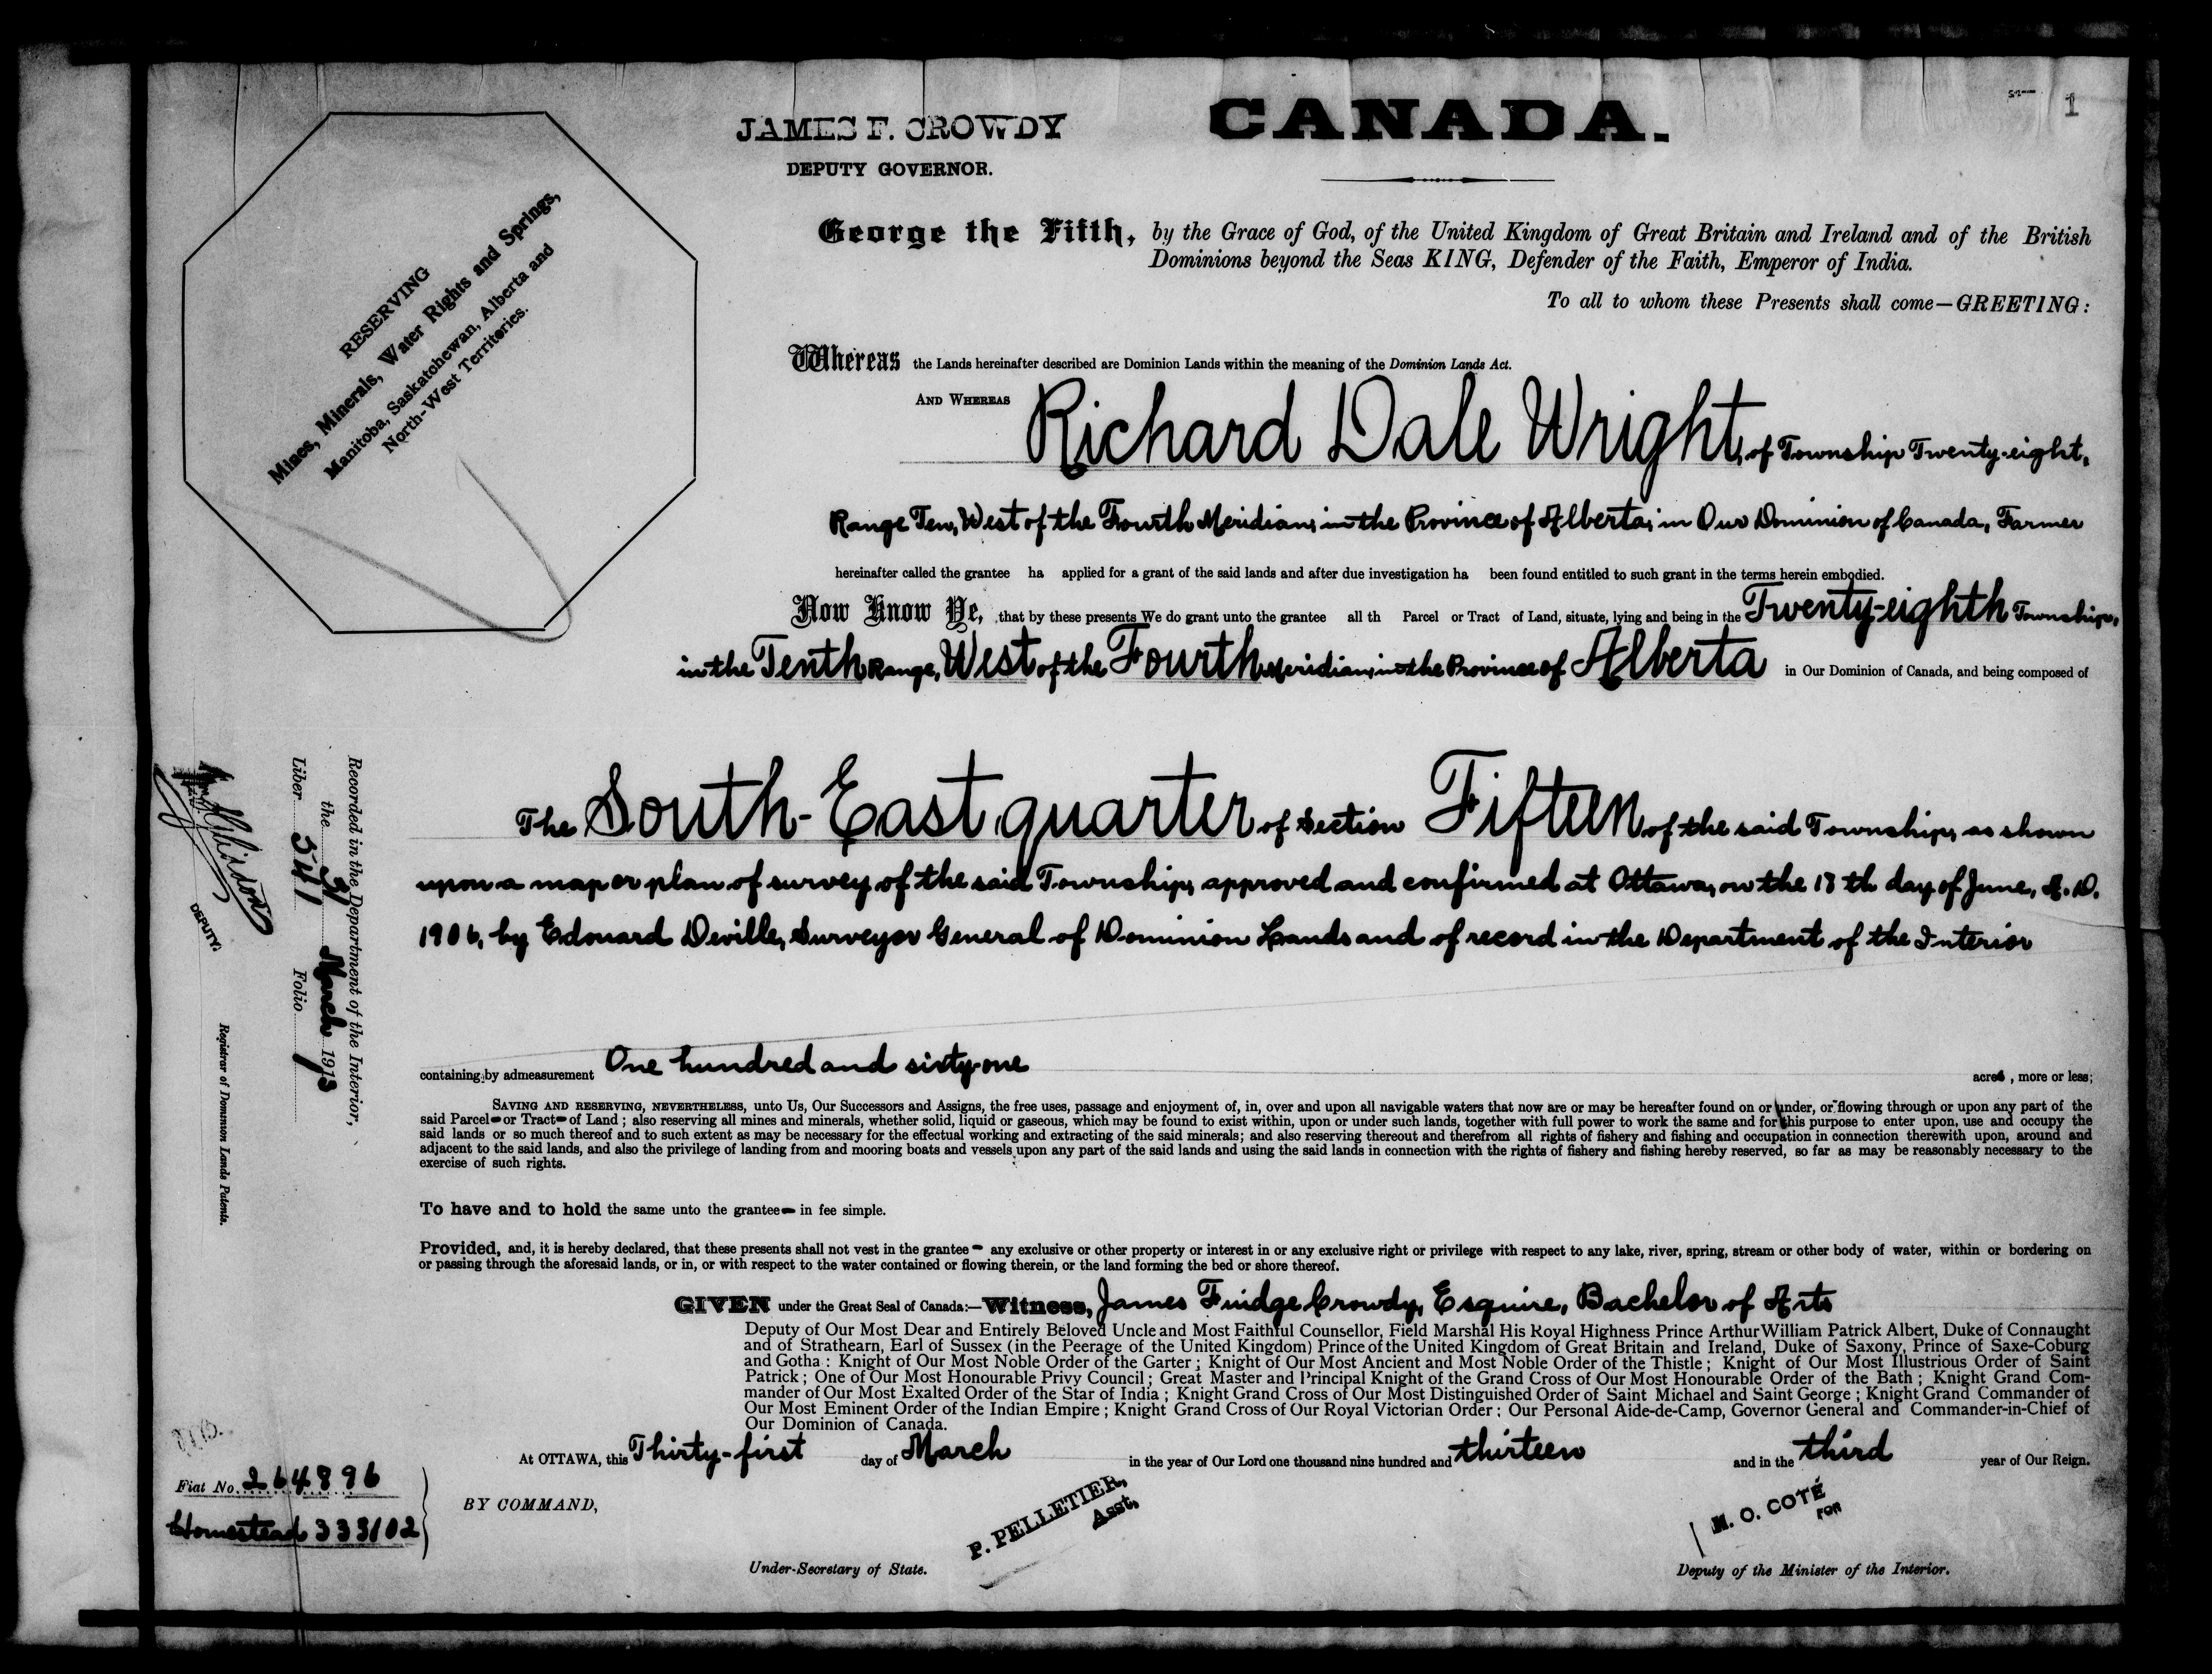 1
JAMES F. CROWDY
DEPUTY GOVERNOR.
CANADA.
RESERVING
Mines, Minerals, Water Rights and Springs,
Manitoba, Saskatchewan, Alberta and
North-West Territories.
George the Fifth, by the Grace of God, of the United Kingdom of Great Britain and Ireland and of the British
Dominions beyond the Seas KING, Defender of the Faith, Emperor of India.
To all to whom these Presents shall come—GREETING:
Whereas the Lands hereinafter described are Dominion Lands within the meaning of the Dominion Lands Act.
AND WHEREAS Richard Dale Wright, of Township Twenty-eight,
Range Ten, West of the Fourth Meridian, in the Province of Alberta, in Our Dominion of Canada, Farmer
hereinafter called the grantee ha applied for a grant of the said lands and after due investigation ha been found entitled to such grant in the terms herein embodied.
Now Know Ye, that by these presents We do grant unto the grantee all th Parcel or Tract of Land, situate, lying and being in the Twenty-eighth Township,
in the Tenth Range, West of the Fourth Meridian, in the Province of Alberta in Our Dominion of Canada, and being composed of
The South-East quarter of Section Fifteen of the said Township, as shown
upon a map or plan of survey of the said Township, approved and confirmed at Ottawa, on the 18th day of June, A.D.
1906, by Edouard Deville, Surveyor General of Dominion Lands and of record in the Department of the Interior
containing by admeasurement One hundred and sixty-one acres, more or less;
SAVING AND RESERVING, NEVERTHELESS, unto Us, Our Successors and Assigns, the free uses, passage and enjoyment of, in, over and upon all navigable waters that now are or may be hereafter found on or under, or flowing through or upon any part of the
said Parcel or Tract of Land; also reserving all mines and minerals, whether solid, liquid or gaseous, which may be found to exist within, upon or under such lands, together with full power to work the same and for this purpose to enter upon, use and occupy the
said lands or so much thereof and to such extent as may be necessary for the effectual working and extracting of the said minerals; and also reserving thereout and therefrom all rights of fishery and fishing and occupation in connection therewith upon, around and
adjacent to the said lands, and also the privilege of landing from and mooring boats and vessels upon any part of the said lands and using the said lands in connection with the rights of fishery and fishing hereby reserved, so far as may be reasonably necessary to the
exercise of such rights.
To have and to hold the same unto the grantee in fee simple.
Provided, and, it is hereby declared, that these presents shall not vest in the grantee any exclusive or other property or interest in or any exclusive right or privilege with respect to any lake, river, spring, stream or other body of water, within or bordering on
or passing through the aforesaid lands, or in, or with respect to the water contained or flowing therein, or the land forming the bed or shore thereof.
GIVEN under the Great Seal of Canada:—Witness, James Fuidge Crowdy, Esquire, Bachelor of Arts
Deputy of Our Most Dear and Entirely Beloved Uncle and Most Faithful Counsellor, Field Marshal His Royal Highness Prince Arthur William Patrick Albert, Duke of Connaught
and of Strathearn, Earl of Sussex (in the Peerage of the United Kingdom) Prince of the United Kingdom of Great Britain and Ireland, Duke of Saxony, Prince of Saxe-Coburg
and Gotha: Knight of Our Most Noble Order of the Garter; Knight of Our Most Ancient and Most Noble Order of the Thistle; Knight of Our Most Illustrious Order of Saint
Patrick; One of Our Most Honourable Privy Council; Great Master and Principal Knight of the Grand Cross of Our Most Honourable Order of the Bath; Knight Grand Com-
mander of Our Most Exalted Order of the Star of India; Knight Grand Cross of Our Most Distinguished Order of Saint Michael and Saint George; Knight Grand Commander of
Our Most Eminent Order of the Indian Empire; Knight Grand Cross of Our Royal Victorian Order: Our Personal Aide-de-Camp, Governor General and Commander-in-Chief of
Our Dominion of Canada.
At OTTAWA, this Thirty-first day of March in the year of Our Lord one thousand nine hundred and thirteen and in the third year of Our Reign.
BY COMMAND,
P. PELLETIER,
Asst.
Under-Secretary of State.
M. O. COTÉ
FOR
Deputy of the Minister of the Interior.
Recorded in the Department of the Interior,
the 31 March 1913
Liber 541 Folio 1
DEPUTY.
Registrar of Dominion Lands Patents.
Fiat No. 264896
Homestead 333102